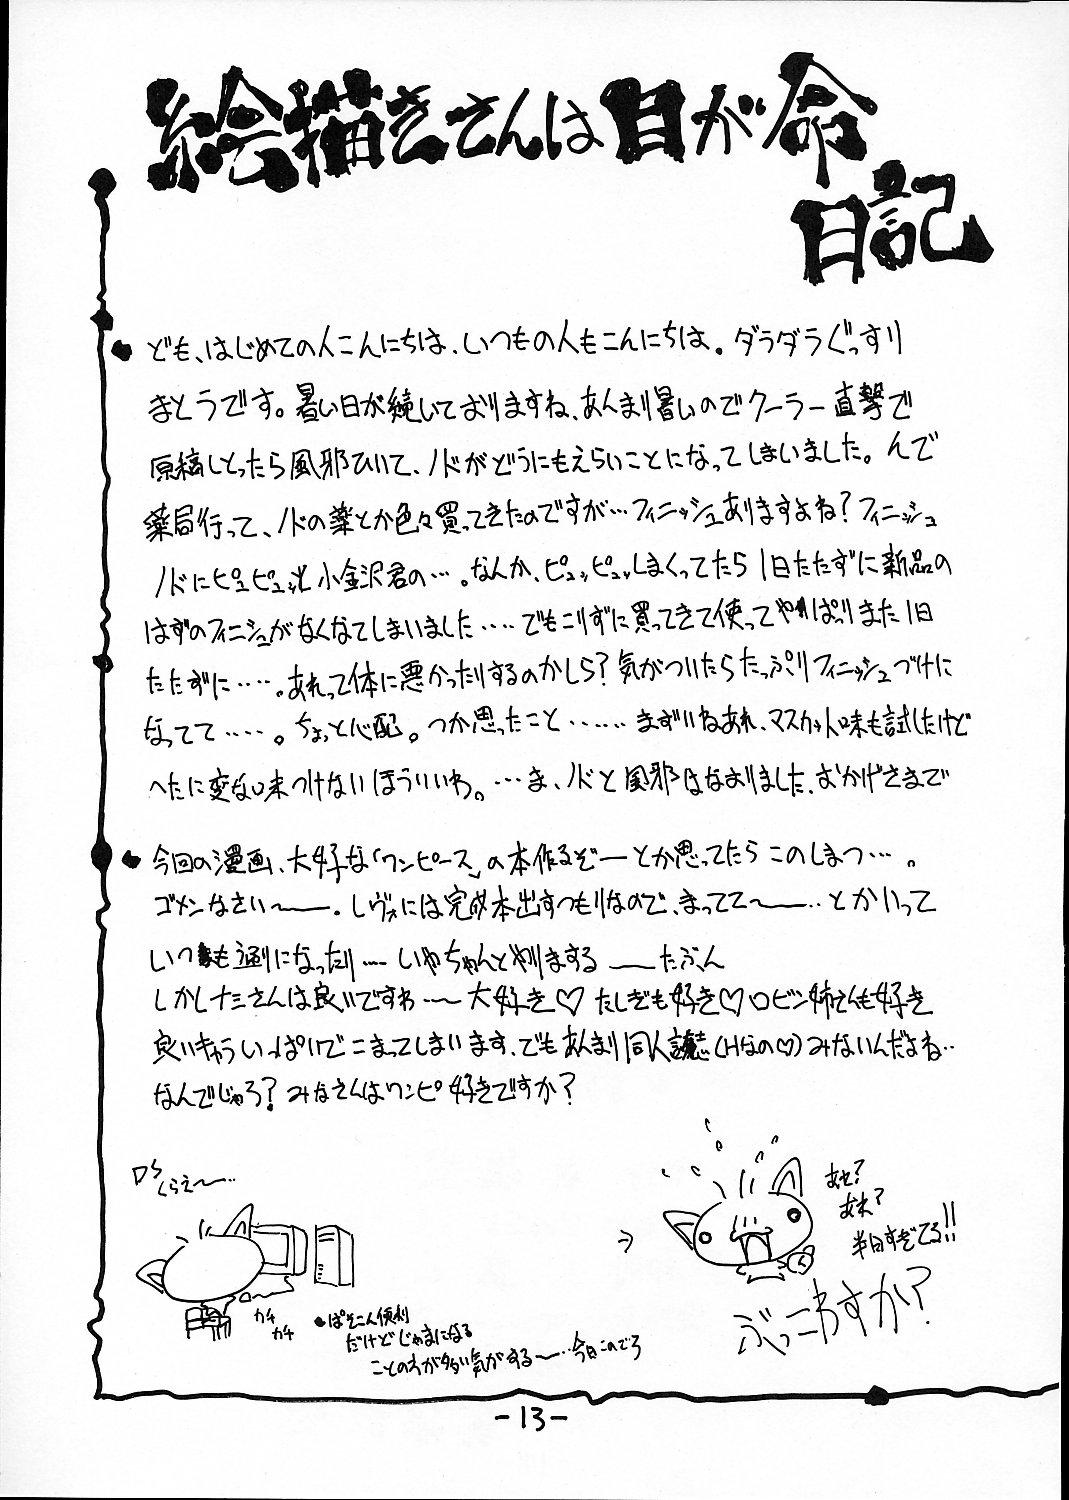 絵描きさんは目が命
日記
ども、はじめての人こんにちは、いつもの人もこんにちは。ダラダラぐっすり
まとうです。暑い日が続いておりますね、あんまり暑いのでクーラー直撃で
原稿しとったら風邪ひいて、ノドがどうにもえらいことになってしまいました。んで
薬局行って、ノドの薬とか色々買ってきたのですが…フィニッシュありますよね?フィニッシュ
ノドにピュピュッと小金沢君の…。なんか、ピュッピュッしまくってたら1日たたずに新品の
はずのフィニシュがなくなてしまいました‥‥でもこりずに買ってきて使ってやっぱりまた1日
たたずに‥‥。あれって体に悪かったりするのかしら?気がついたらたっぷりフィニッシュづけに
なってて‥‥。ちょっと心配。つか思ったこと‥‥‥まずいねあれ、マスカット味も試したけど
へたに変な味つけないほういいわ。…ま、ノドと風邪はなおりました、おかげさまで
今回の漫画、大好な「ワンピース」の本作るぞーとか思ってたらこのしまつ…。
ゴメンなさい〜ー。レヴォには完成本出すつもりなので、まってて〜ー‥とかいって
いつも通りになったり‥‥いやちゃんとやりまする ーたぶん
しかしナミさんは良いですわ〜大好き♡たしぎも好き♡ロビン姉さんも好き
良いきゃらいっぱいでこまってしまいます、でもあんまり同人誌(Hなの♡)みないんだよね‥
なんでじゃろ?みなさんはワンピ好きですか?
くらえ〜‥
カチ
カチ
ぱそこん便利
だけどじゃまになる
ことの方が多い気がする〜‥今日このごろ
→
あれ?
あれ?
半日すぎてる!!
ぶっこわすか?
-13-